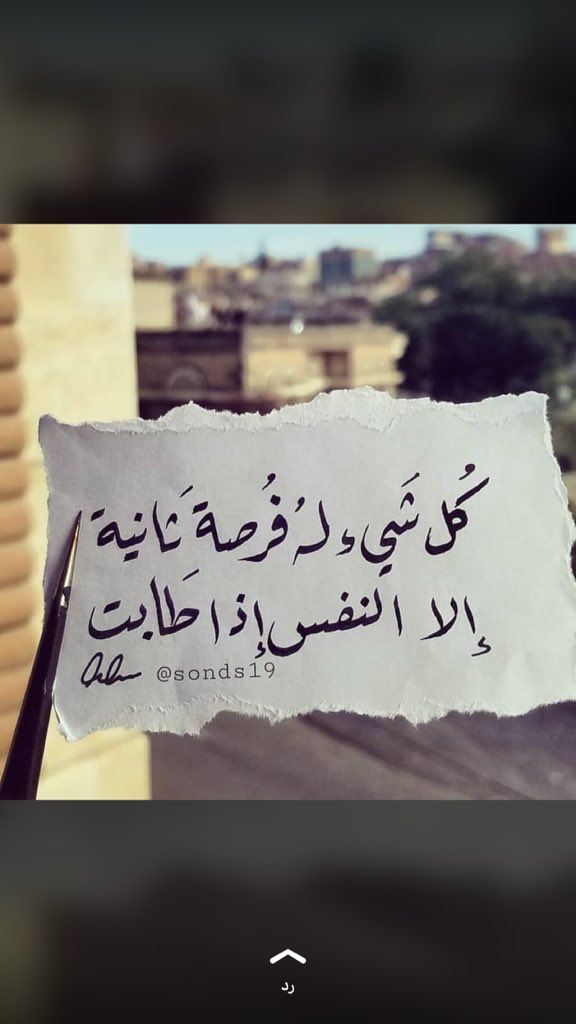 كُل شَيء لهُ فُرصة ثَانية
إلا النفس إذا طَابت
@sonds19
رد